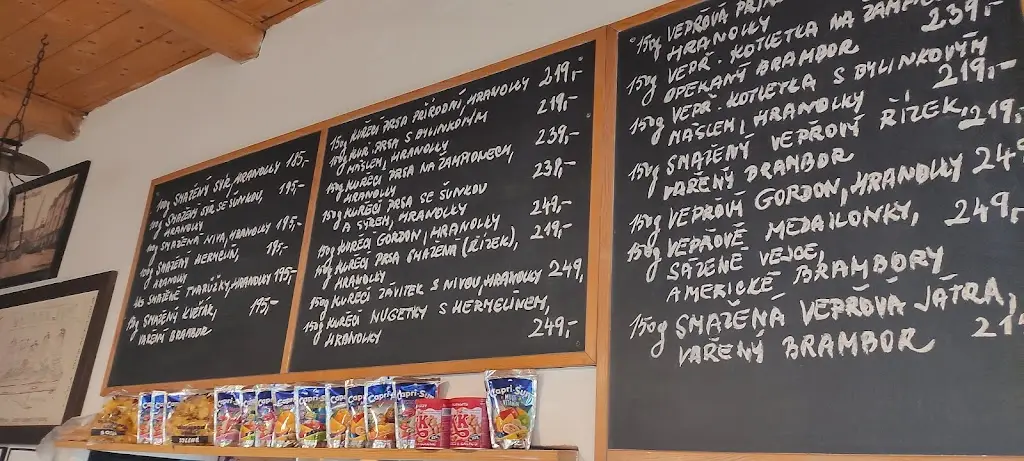 SMAŽENÝ SÝR, HRANOLKY 185,-
SMAŽENÝ SÝR SE ŠUNKOU, 195,-
HRANOLKY
SMAŽENÁ NIVA, HRANOLKY 195,-
SMAŽENÝ HERMELÍN, 195,-
HRANOLKY
SMAŽENÉ TVARŮŽKY, HRANOLKY 195,-
SMAŽENÝ KVĚTÁK, 195,-
VAŘENÝ BRAMBOR
150g KUŘECÍ PRSA PŘÍRODNÍ, HRANOLKY 219,-
150g KUŘ. PRSA S BYLINKOVÝM 219,-
MÁSLEM, HRANOLKY
150g KUŘECÍ PRSA NA ŽAMPIONECH, 239,-
HRANOLKY
150g KUŘECÍ PRSA SE ŠUNKOU 239,-
A SÝREM, HRANOLKY
150g KUŘECÍ GORDON, HRANOLKY 249,-
150g KUŘECÍ PRSA SMAŽENÁ (ŘÍZEK), 219,-
HRANOLKY
150g KUŘECÍ ZÁVITEK S NIVOU, HRANOLKY 249,
150g KUŘECÍ NUGETKY S HERMELÍNEM,
HRANOLKY 249,-
150g VEPŘOVÁ
HRANOLKY
150g VEPŘ. KOTLETKA NA 239,-
OPEKANÝ BRAMBOR
150g VEPŘ. KOTLETKA S BYLINKOVÝM
MÁSLEM, HRANOLKY 219,-
150g SMAŽENÝ VEPŘOVÝ ŘÍZEK, 219,-
VAŘENÝ BRAMBOR
150g VEPŘOVÝ GORDON, HRANOLKY 249
150g VEPŘOVÉ MEDAILONKY, 249,-
SÁZENÉ VEJCE,
AMERICKÉ BRAMBORY
150g SMAŽENÁ VEPŘOVÁ JÁTRA,
VAŘENÝ BRAMBOR 21
Capri-Sun
Capri-Sun
Capri-Sun
Capri-Sun